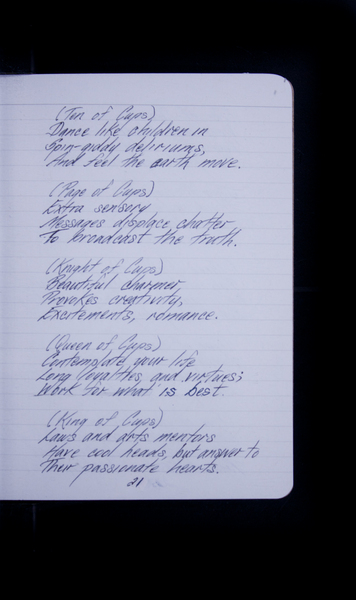 (Ten of Cups)
Dance like children in
Spin-giddy deliriums,
And feel the earth move.
(Page of Cups)
Extra sensory
Messages displace chatter
To broadcast the truth.
(Knight of Cups)
Beautiful charmer
Provokes creativity,
Excitements, romance.
(Queen of Cups)
Contemplate your life
Long loyalties and virtues;
Work for what is best.
(King of Cups)
Laws and arts mentors
Have cool heads, but answer to
Their passionate hearts.
21